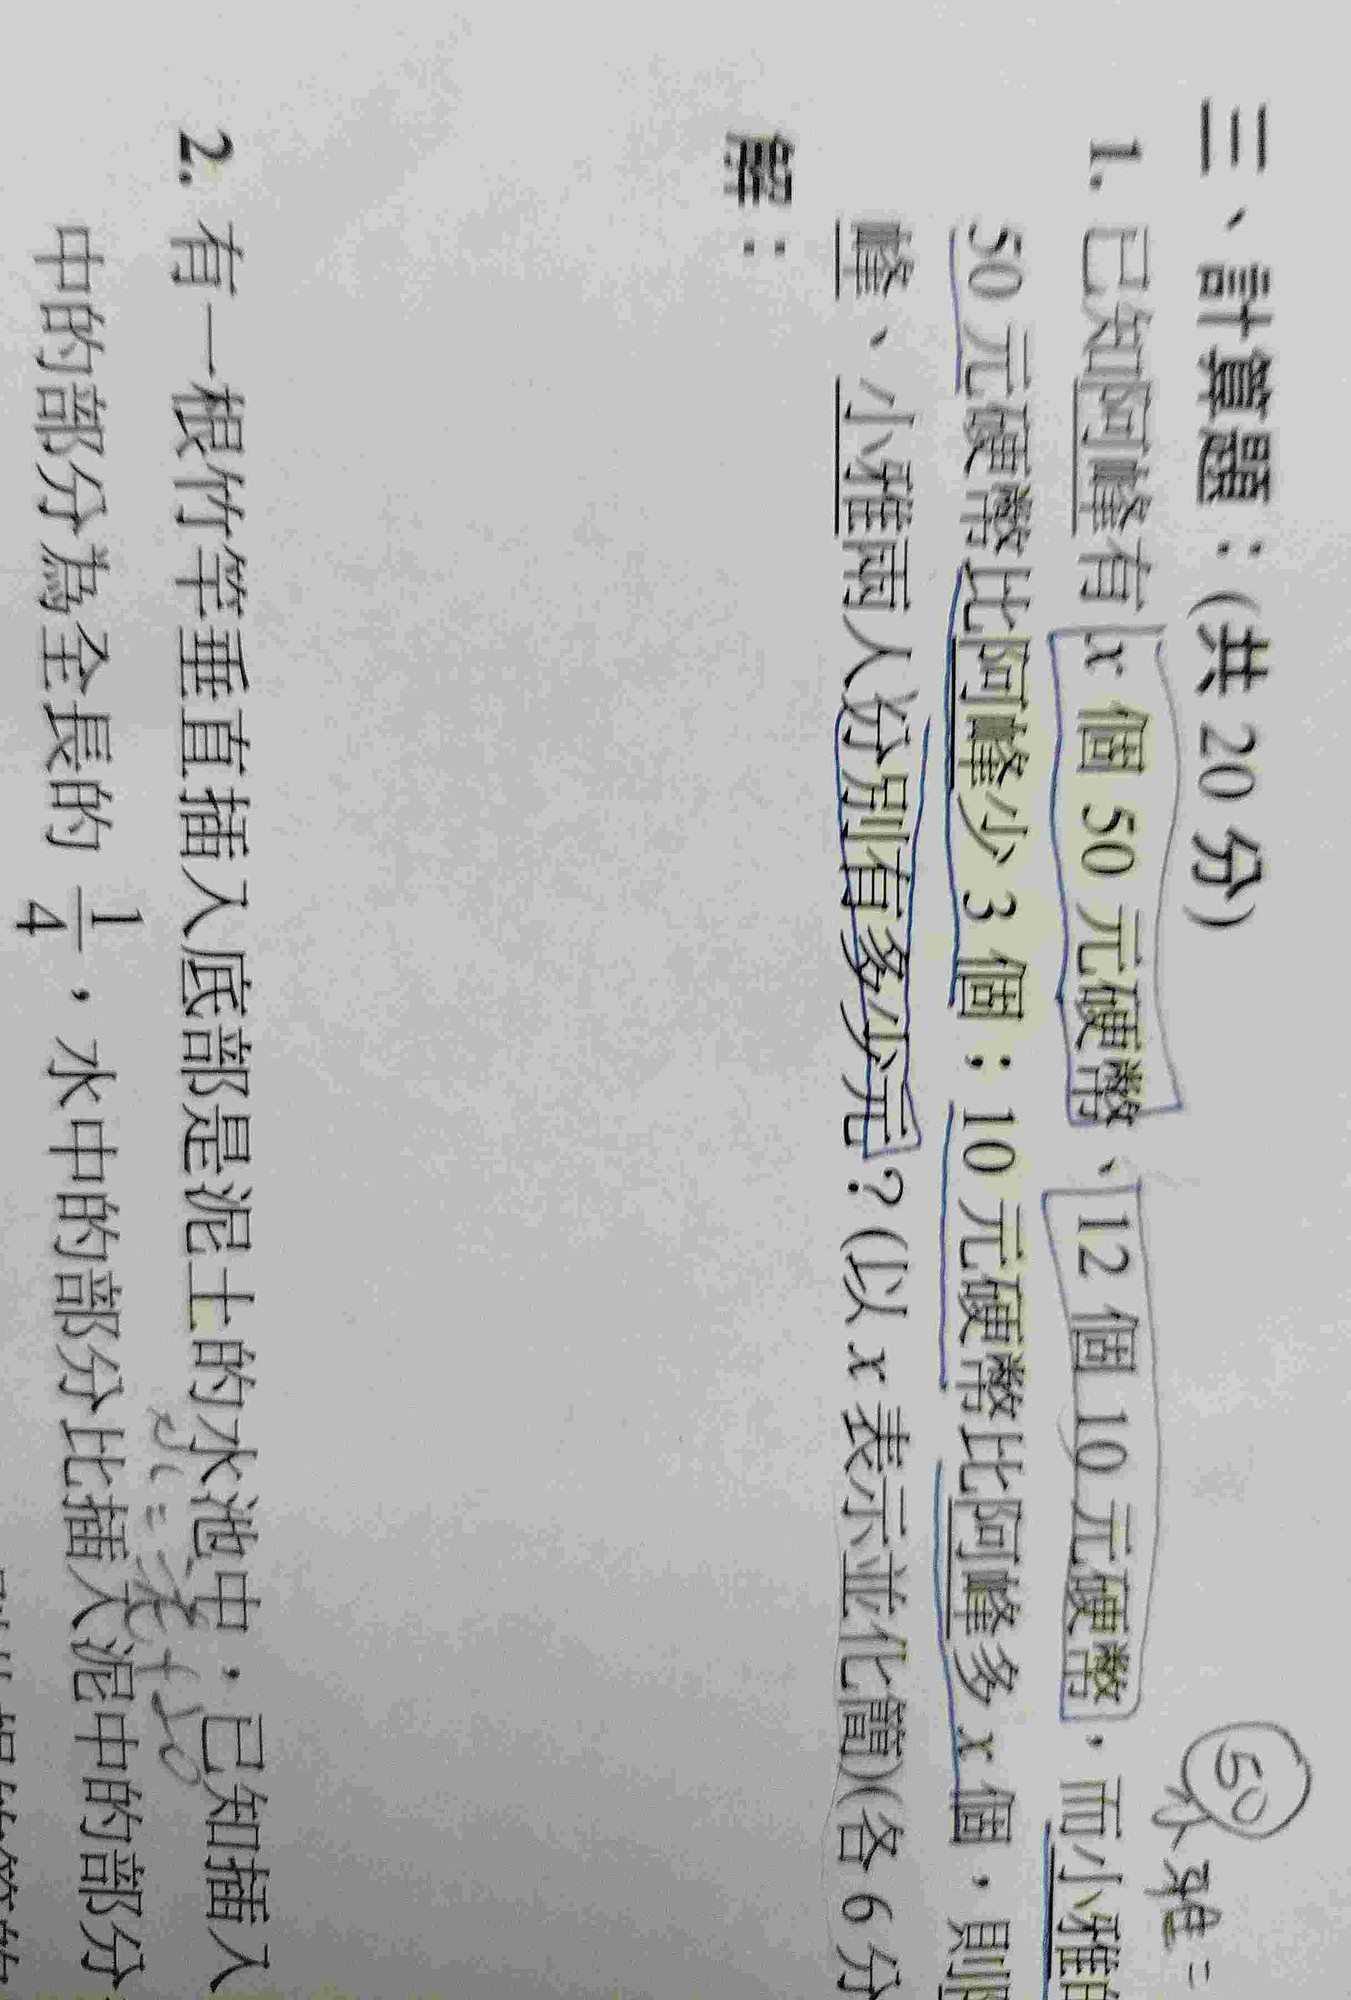 三、計算題：(共 20 分)
50
小雅=
1. 已知阿峰有 x 個 50 元硬幣、12 個 10 元硬幣，而小雅
50 元硬幣比阿峰少 3 個；10 元硬幣比阿峰多 x 個，則
峰、小雅兩人分別有多少元？(以 x 表示並化簡)(各 6 分
解：
2. 有一根竹竿垂直插入底部是泥土的水池中，已知插入
中的部分為全長的 1/4，水中的部分比插入泥中的部分